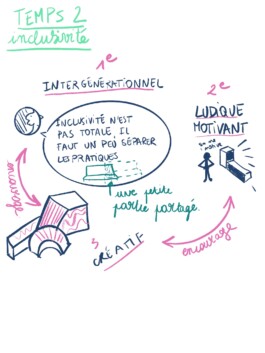 TEMPS 2
inclusivité
1e
INTERGÉNÉRATIONNEL
2e
LUDIQUE
MOTIVANT
INCLUSIVITÉ N'EST
PAS TOTALE, IL
FAUT UN PEU SÉPARER
LES PRATIQUES
une petite
partie partagé.
encourage
3
CRÉATIF
encourage